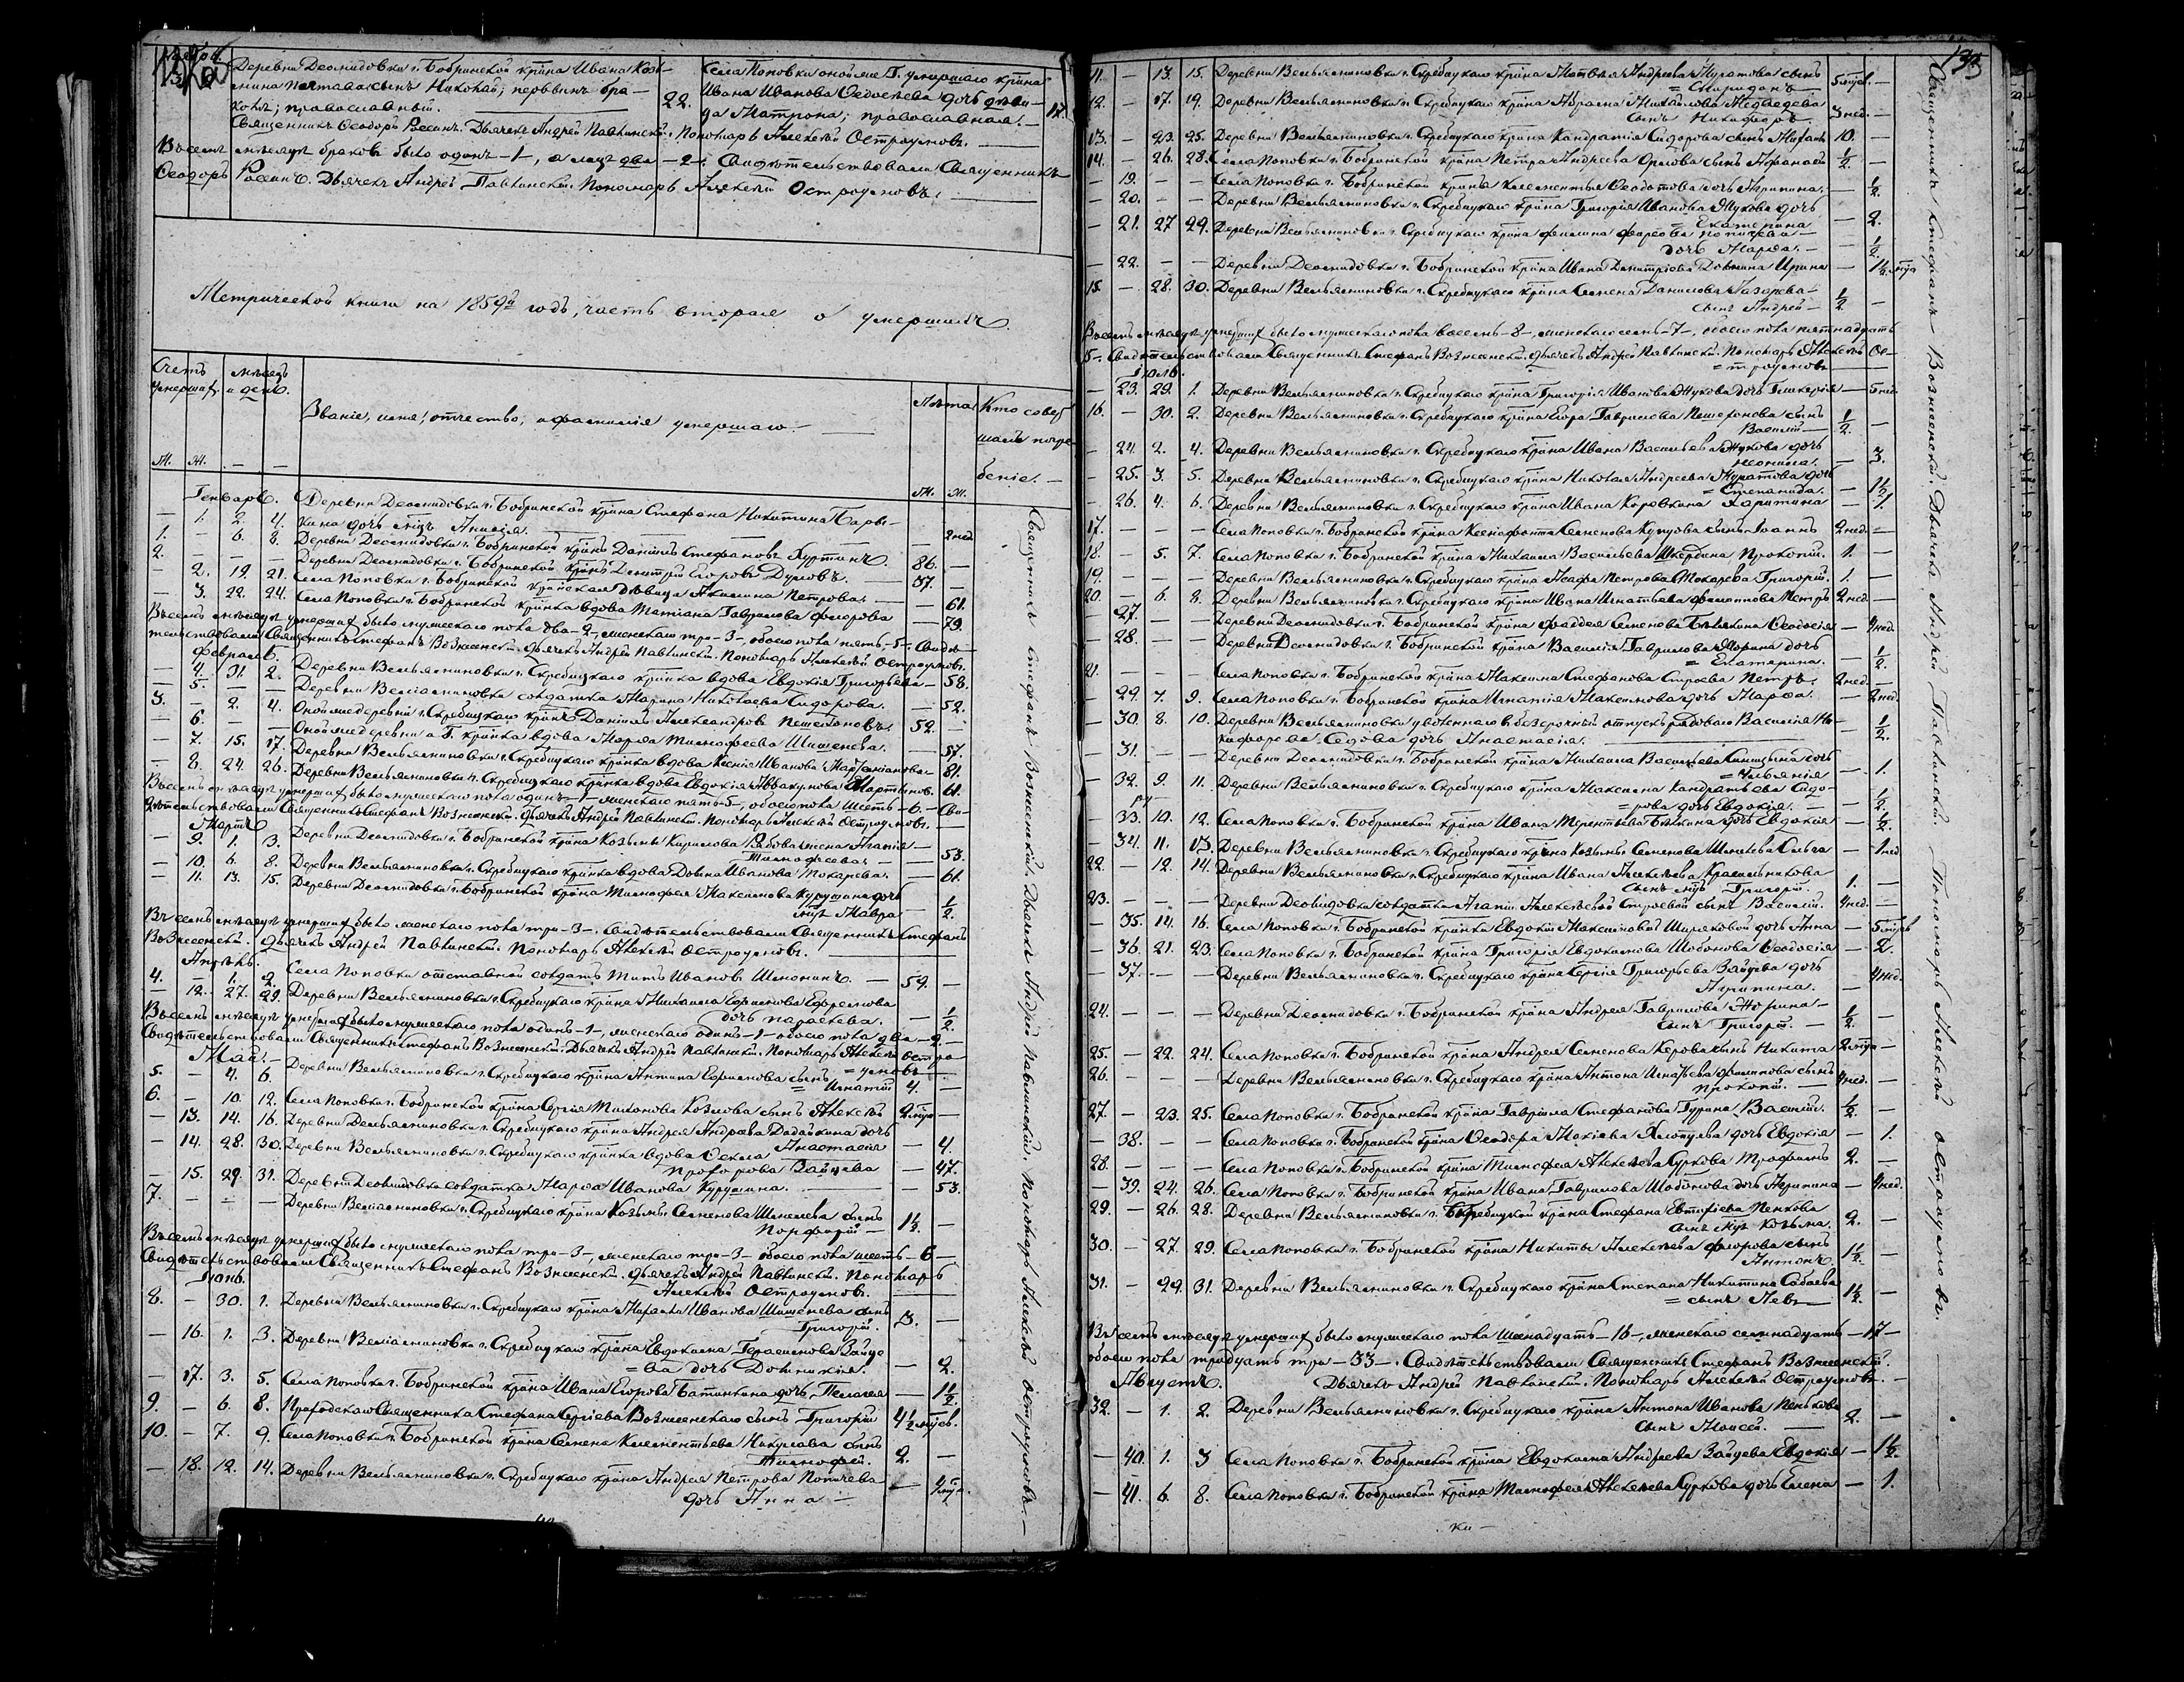 Деревни Деомидовки г. Бобринской кр̃нина Ивана Козь-
сынъ Николай; первымъ бра-
комъ; православный.
22.
Села Поповки оной же Г. умершаго кр̃нина
Ивана Иванова дочь дѣви-
ца Матрона; православная. —
17.
Священникъ Ѳеодоръ Дьячекъ Андрей Павлинскій. Пономарь Алексѣй Остроумовъ.
Въ семъ мѣсяцѣ браковъ было одинъ -1-, а лицъ два -2-. Свидѣтельствовали Священникъ
Ѳеодоръ Дьячекъ Андрей Павлинскій. Пономарь Алексѣй Остроумовъ.
Метрической книги на 1859й годъ, часть вторая о умершихъ.
Счетъ умершихъ.
мѣсяцъ и день.
Званіе, имя, отчество, и фамилія умершаго. —
Лѣта
Кто совершалъ погребеніе. —
М. Ж. — —
М. Ж.
Генварь.
— 1. 2. 4. Деревни Деомидовки г. Бобринской кр̃нина Стефана Никитина
дочь Анисія. — 2 нед.
1. — 6. 8. Деревни Деомидовки г. Бобринской кр̃нинъ Даніилъ Стефановъ 86. —
2. — — — Деревни Деомидовки г. Бобринской кр̃нинъ Димитрій Егоровъ Думовъ. 57. —
— 2. 19. 21. Села Поповки г. Бобринской крѣпостная дѣвица Акилина Петрова. — 61.
— 3. 22. 24. Села Поповки г. Бобринской кр̃нка вдова Татіана Гаврилова Флорова — 79.
Въ семъ мѣсяцѣ умершихъ было мужескаго пола два -2-, женскаго три -3-, обоего пола пять -5-. Свидѣ-
тельствовали Священникъ Стефанъ Вознесенскій. Дьячекъ Андрей Павлинскій. Пономарь Алексѣй Остроумовъ.
Февраль.
— 4. 31. 2. Деревни Вельяминовки г. Скребицкаго кр̃нка вдова Евдокія Григорьева — 58.
— 5. — — Деревни Веліаминовки солдатка Марина Николаева Сидорова. — 52.
3. — 2. 4. Оной же деревни г. Скребицкаго кр̃нинъ Даніилъ Александровъ 52. —
— 6. — — Оной же деревни и Г. кр̃нка вдова Марѳа Тимофеева Шишенева. — 57.
— 7. 15. 17. Деревни Вельяминовки г. Скребицкаго кр̃нка вдова Ксенія Иванова — 81.
— 8. 24. 26. Деревни Вельяминовки г. Скребицкаго кр̃нка вдова Евдокія Аввакумова Мартинов. 61.
Въ семъ мѣсяцѣ умершихъ было мужескаго пола одинъ -1-, женскаго пять -5-, обоего пола шесть -6-. Сви-
дѣтельствовали Священникъ Стефанъ Вознесенскій. Дьячекъ Андрей Павлинскій. Пономарь Алексѣй Остроумовъ.
Мартъ.
— 9. 1. 3. Деревни Деомидовки г. Бобринской кр̃нина Козьмы Кирилова жена Агапія
Тимофеева. — 53.
— 10. 6. 8. Деревни Вельяминовки г. Скребицкаго кр̃нка вдова Домна Иванова Токарева. — 61.
— 11. 13. 15. Деревни Деомидовки г. Бобринской кр̃нина Тимофея Максимова Курушина дочь
Мавра — ½.
Въ семъ мѣсяцѣ умершихъ было женскаго пола три -3-. Свидѣтельствовали Священникъ Стефанъ
Вознесенскій. Дьячекъ Андрей Павлинскій. Пономарь Алексѣй Остроумовъ.
Апрѣль.
4. — 1. 2. Села Поповки отставной солдатъ Титъ Ивановъ 59. —
— 12. 27. 29. Деревни Вельяминовки г. Скребицкаго кр̃нина Михаила Ефимова Ефремова
дочь Параскева. — ½.
Въ семъ мѣсяцѣ умершихъ было мужескаго пола одинъ -1-, женскаго одинъ -1- обоего пола два -2-
Свидѣтельствовали Священникъ Стефанъ Вознесенскій. Дьячекъ Андрей Павлинскій. Пономарь Алексѣй Остро-
= умовъ. —
Май. —
5. — 4. 6. Деревни Вельяминовки г. Скребицкаго кр̃нина Антипа Ефимова сынъ
Игнатій 4. —
6. — 10. 12. Села Поповки г. Бобринской кр̃нина Сергія Тихонова Козлова сынъ Алексѣй 2 мѣс. —
— 13. 14. 16. Деревни Вельяминовки г. Скребицкаго кр̃нина Андрея Андреева дочь
Анастасія — 4.
— 14. 28. 30. Деревни Вельяминовки г. Скребицкаго кр̃нка вдова Ѳекла
Прохорова Зайцева — 47.
— 15. 29. 31. Деревни Деомидовки солдатка Марѳа Иванова Курушина. — 53.
7. — — — Деревни Веліаминовки г. Скребицкаго кр̃нина Козьмы Семенова Шмелева сынъ
Порфирій — 1½. —
Въ семъ мѣсяцѣ умершихъ было мужескаго пола три -3-, женскаго три -3- обоего пола шесть -6-
Свидѣтельствовали Священникъ Стефанъ Вознесенскій. Дьячекъ Андрей Павлинскій. Пономарь
Алексѣй Остроумовъ.
Іюнь.
8. — 30. 1. Деревни Вельяминовки г. Скребицкаго кр̃нина Иванова Шишенева сынъ
Григорій. 3. —
— 16. 1. 3. Деревни Веліаминовки г. Скребицкаго кр̃нина Евдокима Герасимова Зайце
= ва дочь Домникія. — 2.
— 17. 3. 5. Села Поповки г. Бобринской кр̃нина Ивана Егорова дочь Пелагея — 1½.
9. — 6. 8. Приходскаго Священника Стефана Сергіева Вознесенскаго сынъ Григорій 4½ мѣс. —
10. — 7. 9. Села Поповки г. Бобринской кр̃нина Семена Климентьева сынъ
Тимофей. 2. —
— 18. 12. 14. Деревни Вельяминовки г. Скребицкаго кр̃нина Андрея Петрова
дочь Анна — мѣс.
Священникъ Стефанъ Вознесенскій. Дьячекъ Андрей Павлинскій. Пономарь Алексѣй Остроумовъ. —
11. — 13. 15. Деревни Вельяминовки г. Скребицкаго кр̃нина Матвѣя Андреева Муратова сынъ
= Спиридонъ 5 мѣс. —
12. — 17. 19. Деревни Вельяминовки г. Скребицкаго кр̃нина Абрама Михайлова Медведева
сынъ Никифоръ 3 нед. —
13. — 23. 25. Деревни Вельяминовки г. Скребицкаго кр̃нина Кандратія Сидорова сынъ 10. —
14. — 26. 28. Села Поповки г. Бобринской кр̃нина Петра Андреева Орлова сынъ Афанасій ½. —
— 19. — — Села Поповки г. Бобринской кр̃нина Климентья Ѳедотова дочь Агрипина. — ½.
— 20. — — Деревни Вельяминовки г. Скребицкаго кр̃нина Григорія Иванова Жукова дочь
= Екатерина — 2.
— 21. 27 29. Деревни Вельяминовки г. Скребицкаго кр̃нина
дочь Марѳа. — ½.
— 22. — — Деревни Деомидовки г. Бобринской кр̃нина Ивана Димитріева Ирина — 1½ мѣс.
15. — 28. 30. Деревни Вельяминовки г. Скребицкаго кр̃нина Семена Данилова Лазарева
сынъ Андрей — ½ —
Въ семъ мѣсяцѣ умершихъ было мужескаго пола восемь -8-, женскаго семь -7-, обоего пола пятнадцать
15-. Свидѣтельствовали Священникъ Стефанъ Вознесенскій. Дьячекъ Андрей Павлинскій. Пономарь Алексѣй Ос-
= троумовъ
Іюль.
— 23. 29. 1. Деревни Вельяминовки г. Скребицкаго кр̃нина Григорія Иванова Жукова дочь Гликерія — 5 нед.
16. — 30. 2. Деревни Вельяминовки г. Скребицкаго кр̃нина Егора Гаврилова сынъ
Василій — ½. —
— 24. 2. 4. Деревни Вельяминовки г. Скребицкаго кр̃нина Ивана Васильева Жукова дочь
— 3.
— 25. 3. 5. Деревни Вельяминовки г. Скребицкаго кр̃нина Николая Андреева Муратова дочь
= Степанида. — 1½.
— 26. 4. 6. Деревни Вельяминовки г. Скребицкаго кр̃нина Ивана Коровкина Харитина — 1.
17. — — — Села Поповки г. Бобринской кр̃нина Ксенофонта Семенова Купцова сынъ Іоаннъ 2 нед. —
18. — 5. 7. Села Поповки г. Бобринской кр̃нина Михаила Васильева Прокопій. 1. —
19. — — — Деревни Вельяминовки г. Скребицкаго кр̃нина Петрова Токарева Григорій. 1. —
20. — 6. 8. Деревни Вельяминовки г. Скребицкаго кр̃нина Ивана Игнатьева Филиппова Петръ 2 нед. —
— 27. — — Деревни Деомидовки г. Бобринской кр̃нина Фаддея Семенова Ѳеодосія — 4 нед.
— 28. — — Деревни Деомидовки г. Бобринской кр̃нина Василія Гаврилова дочь
= Екатерина. — ½.
21. — — — Села Поповки г. Бобринской кр̃нина Максима Стефанова Строева Петръ. 2 нед. —
— 29. 7. 9. Села Поповки г. Бобринской кр̃нина Игнатія Максимова дочь Марѳа. — 2 нед.
— 30. 8. 10. Деревни Вельяминовки уволеннаго в безсрочный отпускъ рядоваго Василія Ни-
кифорова Седова дочь Анастасія. — ½.
— 31. — — Деревни Деомидовки г. Бобринской кр̃нина Михаила Васильева Синицына дочь
= Ульянія — 1.
— 32. 9. 11. Деревни Вельяминовки г. Скребицкаго кр̃нина Максима Кандратьева Сидо-
= рова дочь Евдокія. — ½.
— 33. 10. 12. Села Поповки г. Бобринской кр̃нина Ивана Терентьева дочь Евдокія — ½.
— 34. 11. 13. Деревни Вельяминовки г. Скребицкаго кр̃нина Козьмы Семенова Шмелева Ольга — 1 нед.
22. — 12. 14. Деревни Вельяминовки г. Скребицкаго кр̃нина Ивана Алексѣева Красильникова
сынъ Григорій. 1. —
23. — — — Деревни Деомидовки солдатки Агапіи Алексѣевой Строевой сынъ Василій. 4 нед. —
— 35. 14. 16. Села Поповки г. Бобринской кр̃нки Евдокіи Максимовой Ширяковой дочь Анна — 5 мѣс.
— 36. 21. 23. Села Поповки г. Бобринской кр̃нина Григорія Евдокимова Шабонова Ѳеодосія — 2.
— 37. — — Деревни Вельяминовки г. Скребицкаго кр̃нина Сергія Григорьева Зайцева дочь
Агрипина. — 4 нед.
24. — — — Деревни Деомидовки г. Бобринской кр̃нина Андрея Гаврилова
сынъ Григорій. — ½. —
25. — 22. 24. Села Поповки г. Бобринской кр̃нина Андрея Семенова сынъ Никита 2 мѣс. —
26. — — — Деревни Вельяминовки г. Скребицкаго кр̃нина Антона Игнатьева Филипова сынъ
Прокопій. — 4 нед. —
27. — 23. 25. Села Поповки г. Бобринской кр̃нина Гавріила Стефанова Гурина Василій. ½. —
— 38. — — Села Поповки г. Бобринской кр̃нина Ѳеодора дочь Евдокія — 1.
28. — — — Села Поповки г. Бобринской кр̃нина Тимофея Алексѣева Суркова Трофимъ 2. —
— 39. 24. 26. Села Поповки г. Бобринской кр̃нина Ивана Гаврилова Шабонова дочь Агрипина — 4 нед.
29. — 26. 28. Деревни Вельяминовки г. Скребицкой кр̃нина Стефана Евтифіева Пенкова
сынъ Козьма. 2. —
30. — 27. 29. Села Поповки г. Бобринской кр̃нина Никиты Алексѣева Флорова сынъ
Антонъ. 1½. —
31. — 29. 31. Деревни Вельяминовки г. Скребицкаго кр̃нина Степана Никитина Сабаева
= сынъ Левъ 1½. —
Въ семъ мѣсяцѣ умершихъ было мужескаго пола шеснадцать -16-, женскаго семнадцать -17-
обоего пола тридцать три -33-. Свидѣтельствовали Священникъ Стефанъ Вознесенскій.
Дьячекъ Андрей Павлинскій. Пономарь Алексѣй Остроумовъ. —
Августъ.
32. — 1. 2. Деревни Вельяминовки г. Скребицкаго кр̃нина Антона Иванова Пенькова
сынъ Моисей. 2. —
— 40. 1. 3 Села Поповки г. Бобринской кр̃нина Евдокима Андреева Зайцева Евдокія — 1½.
— 41. 6. 8. Села Поповки г. Бобринской кр̃нина Тимофея Алексѣева Суркова дочь Елена — 1.
Священникъ Стефанъ Вознесенскій. Дьячекъ Андрей Павлинскій. Пономарь Алексѣй Остроумовъ.